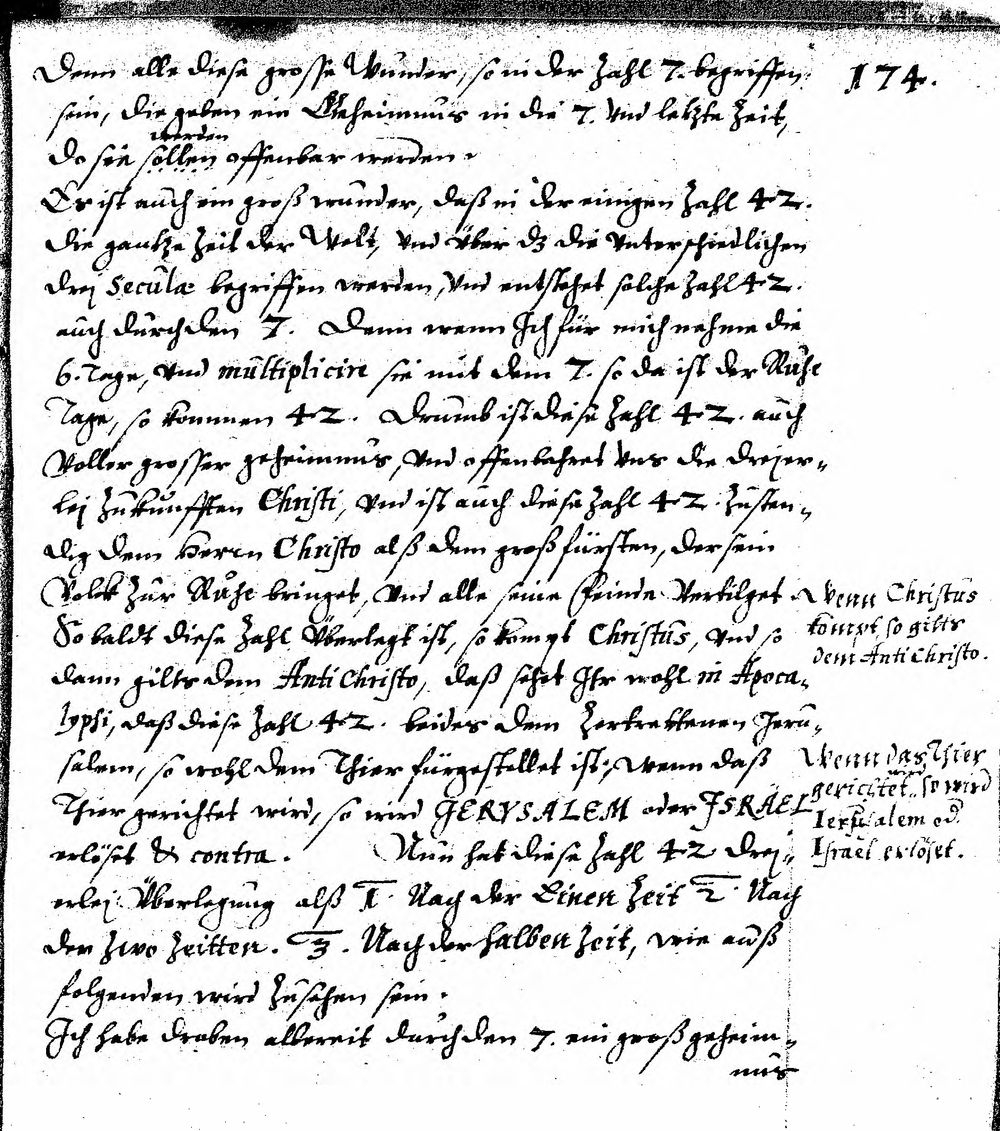 174.
Denn alle diese grosse Wunder, so in der Zahl 7. begriffen
sein, die geben ein Geheimnus in die 7. Vnd letzte Zeit,
werden
do sie sollen offenbar werden.
Es ist auch ein groß wunder, daß in der einigen Zahl 42.
die gantze Zeit der Welt, Vnd über dz die vnterschiedlichen
drej Seculæ begriffen werden, Vnd entstehet solche Zahl 42.
auch durch den 7. Denn wenn Ich für mich nehme die
6. Tage, Vnd multiplicire sie mit dem 7. so da ist der Ruhe
Tage, so kommen 42. Drumb ist diese Zahl 42. auch
Voller grosser geheimnus, Vnd offenbahret Vns die drejer-
lej Zukunfften Christi, Vnd ist auch diese Zahl 42. Zusten-
dig dem Herrn Christo alß dem großfürsten, der sein
Volck Zur Ruhe bringet, Vnd alle seine Feinde Vertilget
So baldt diese Zahl Überlegt ist, so kompt Christus, Vnd so
dann gilts dem AntiChristo, daß sehet Ihr wohl in Apoca-
lypsi, daß diese Zahl 42. beides dem Zertrettenen Jeru-
salem, so wohl dem Thier fürgestellet ist, Wenn daß
Thier gerichtet wird, so wird JERVSALEM oder ISRAEL
erlöset & contra. Nun hat diese Zahl 42 drej-
erlej Überlegung alß 1. Nach der Einen Zeit 2. Nach
der Zwo Zeitten. 3. Nach der halben Zeit, wie auß
folgenden wird Zusehen sein.
Ich habe droben allereit durch den 7. ein groß geheim-
nus
Wenn Christus
kompt, so gilts
dem AntiChristo.
Wenn das Thier
wird
gerichtet, so wird
Ierusalem od.
Israel erlöset.